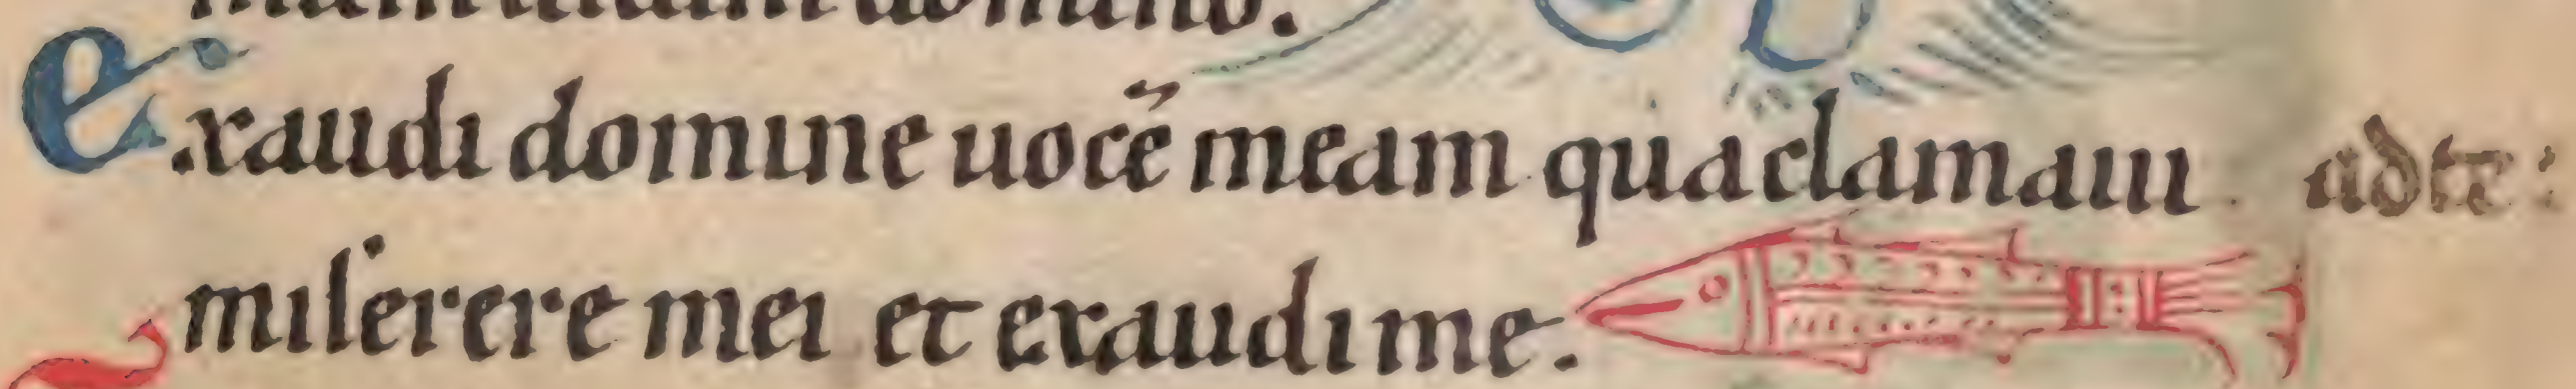 Exaudi domine uocē meam qua clamaui ad te:
miserere mei et exaudi me.